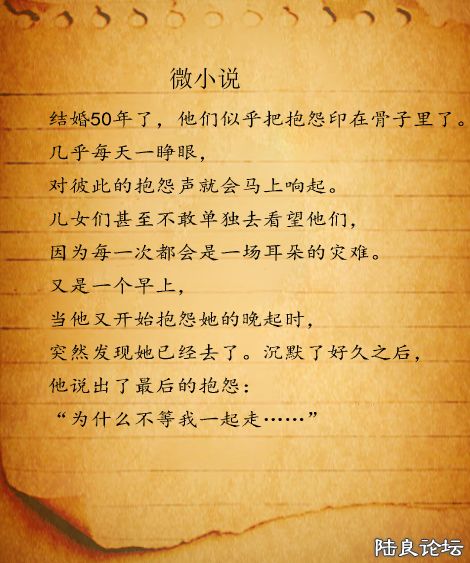 微小说
结婚50年了，他们似乎把抱怨印在骨子里了。
几乎每天一睁眼，
对彼此的抱怨声就会马上响起。
儿女们甚至不敢单独去看望他们，
因为每一次都会是一场耳朵的灾难。
又是一个早上，
当他又开始抱怨她的晚起时，
突然发现她已经去了。沉默了好久之后，
他说出了最后的抱怨：
“为什么不等我一起走……”
陆良论坛